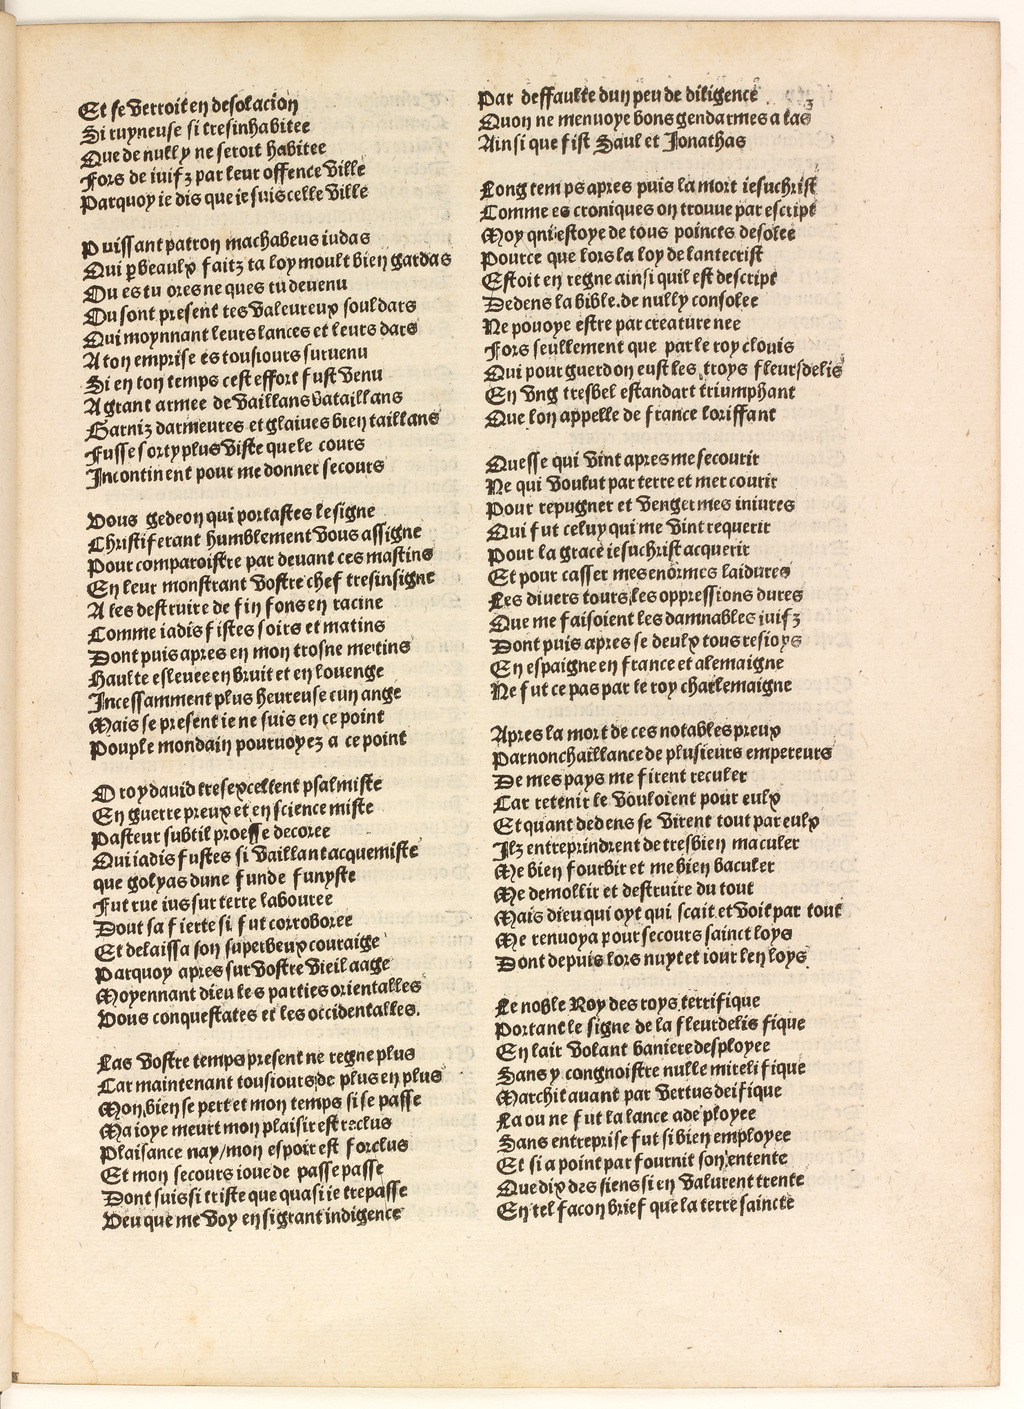 Et se verroit en desolacion
Si ruyneuse si tresinhabitee
Que de nully ne seroit habitee
Fors de iuifz par leur offence ville
Parquoy ie dis que ie suis celle ville
Puissant patron machabeus iudas
Qui p beaulx faitz ta loy moult bien gardas
Ou es tu ores ne ques tu deuenu
Ou sont present tes valeureux souldars
Qui moynnant leurs lances et leurs dars
A ton emprise es tousiours suruenu
Si en ton temps cest effort fust venu
A grant armee de vaillans bataillans
Garniz darmeures et glaiues bien taillans
Fusse sorty plus viste que le cours
Incontinent pour me donner secours
Vous gedeon qui portastes le signe
Christiferant humblement vous assigne
Pour comparoistre par deuant ces mastins
En leur monstrant vostre chef tresinsigne
A les destruire de fin fons en racine
Comme iadis fistes soirs et matins
Dont puis apres en mon trosne metins
Haulte esleuee en bruit et en louenge
Incessamment plus heureuse cun ange
Mais se present ie ne suis en ce point
Pouple mondain pouruoyez a ce point
O roy dauid tresexcellent psalmiste
En guerre preux et en science miste
Pasteur subtil proesse decoree
Qui iadis fustes si vaillant acquemiste
que golyas dune funde funyste
Fut rue ius sur terre labouree
Dont sa fierte si fut corroboree
Et delaissa son superbeux couraige
Parquoy apres sur vostre vieil aage
Moyennant dieu les parties orientalles
Vous conquestates et les occidentalles.
Las vostre temps present ne regne plus
Car maintenant tousiours de plus en plus
Mon bien se pert et mon temps si se passe
Ma ioye meurt mon plaisir est reclus
Plaisance nay/mon espoir est forclus
Et mon secours ioue de passe passe
Dont suis si triste que quasi ie trepasse
Veu que me voy en si grant indigence
Par deffaulte dun peu de diligence
Quon ne menuoye bons gendarmes a las
Ainsi que fist Saul et Jonathas
Long temps apres puis la mort iesuchrist
Comme es croniques on trouue par escript
Moy qni estoye de tous poincts desolee
Pource que lors la loy de lantecrist
Estoit en regne ainsi quil est descript
Dedens la bible.de nully consolee
Ne pouoye estre par creature nee
Fors seullement que par le roy clouis
Qui pour guerdon eust les troys fleursdelis
En vng tresbel estandart triumphant
Que lon appelle de france loriffant
Quesse qui vint apres me secourir
Ne qui voulut par terre et mer courir
Pour repugner et venger mes iniures
Qui fut celuy qui me vint requerir
Pour la grace iesuchrist acquerir
Et pour casser mes enormes laidures
Les diuers tours les oppressions dures
Que me faisoient les damnables iuifz
Dont puis apres se deulx tous resioys
En espaigne en france et alemaigne
Ne fut ce pas par le roy charlemaigne
Apres la mort de ces notables preux
Par nonchaillance de plusieurs empereurs
De mes pays me firent reculer
Car retenir le vouloient pour eulx
Et quant dedens se virent tout par eulx
Ilz entreprindrent de tresbien maculer
Me bien fourbir et me bien baculer
Me demollir et destruire du tout
Mais dieu qui oyt qui scait et voit par tout
Me renuoya pour secours sainct loys
Dont depuis lors nuyt et iour len loys.
Le noble Roy des roys terrifique
Portant le signe de la fleurdelis fique
En lair volant baniere desployee
Sans y congnoistre nulle mirelifique
Marchit auant par vertus deifique
La ou ne fut la lance adeployee
Sans entreprise fut si bien employee
Et si a point par fournit son entente
Que dix des siens si en valurent trente
En tel facon brief que la terre saincte